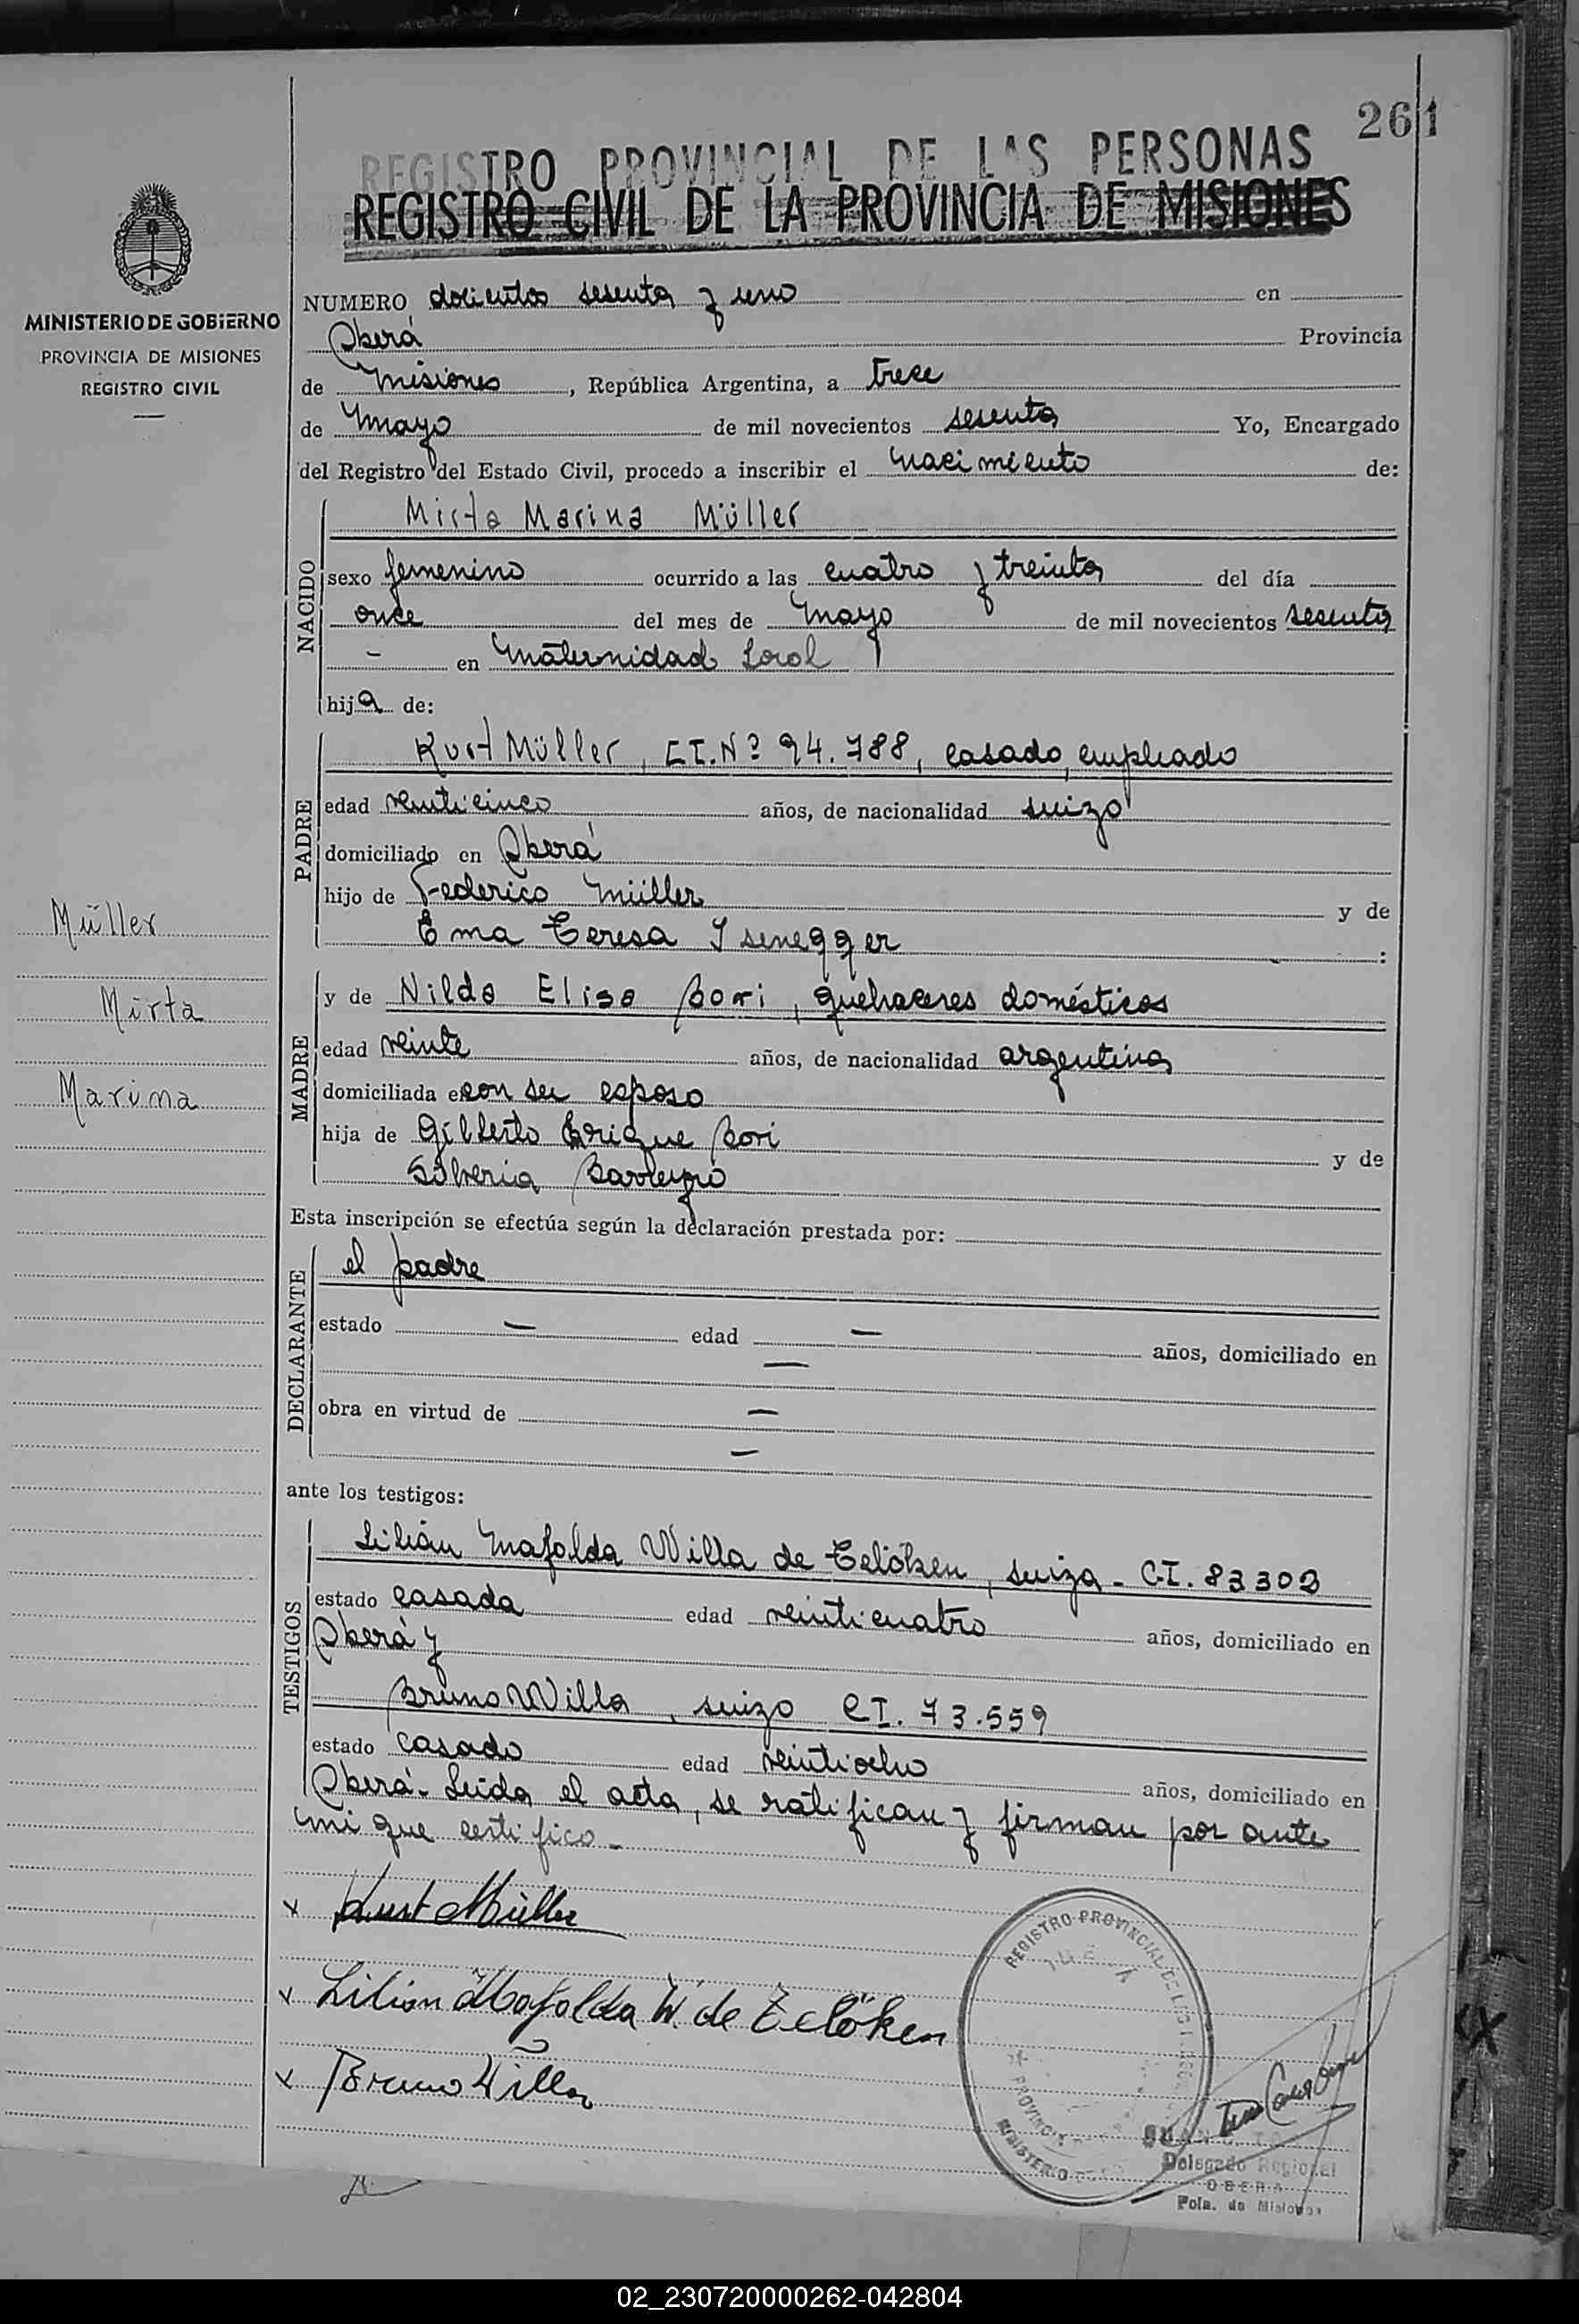 261
REGISTRO PROVINCIAL DE LAS PERSONAS
REGISTRO CIVIL DE LA PROVINCIA DE MISIONES
MINISTERIO DE GOBIERNO
PROVINCIA DE MISIONES
REGISTRO CIVIL
NUMERO docientos sesenta y uno en
Oberá Provincia
de Misiones, República Argentina, a trece
de Mayo de mil novecientos sesenta Yo, Encargado
del Registro del Estado Civil, procedo a inscribir el nacimiento de:
NACIDO
Mirta Marina Müller
sexo femenino ocurrido a las cuatro y treinta del día
once del mes de Mayo de mil novecientos sesenta
- en Maternidad Local
hija de:
PADRE
Kurt Müller, C.I. Nº 94.788, casado, empleado
edad veinticinco años, de nacionalidad suizo
domiciliado en Oberá
hijo de Federico Müller y de
Ema Teresa Isenegger :
MADRE
y de Nilda Elisa Bori, quehaceres domésticos
edad veinte años, de nacionalidad argentina
domiciliada en con su esposo
hija de Gilberto Enrique Bori y de
Silveria Barreyro
Müller
Mirta
Marina
Esta inscripción se efectúa según la declaración prestada por:
DECLARANTE
el padre
estado — edad — años, domiciliado en
—
obra en virtud de —
—
ante los testigos:
TESTIGOS
Lilián Mafalda Willa de Zelöken, suiza - C.I. 83303
estado casada edad veinticuatro años, domiciliado en
Oberá y
Bruno Willa, suizo C.I. 73.559
estado casado edad veintiocho años, domiciliado en
Oberá. Leida el acta, se ratifican y firman por ante
mi que certifico.-
x Kurt Müller
x Lilian Mafalda W. de Zelöken
x Bruno Willa
REGISTRO PROVINCIAL DE LAS
PROVINCIA
MINISTERIO
Delegado Regional
OBERA
Pcia. de Misiones
02_230720000262-042804